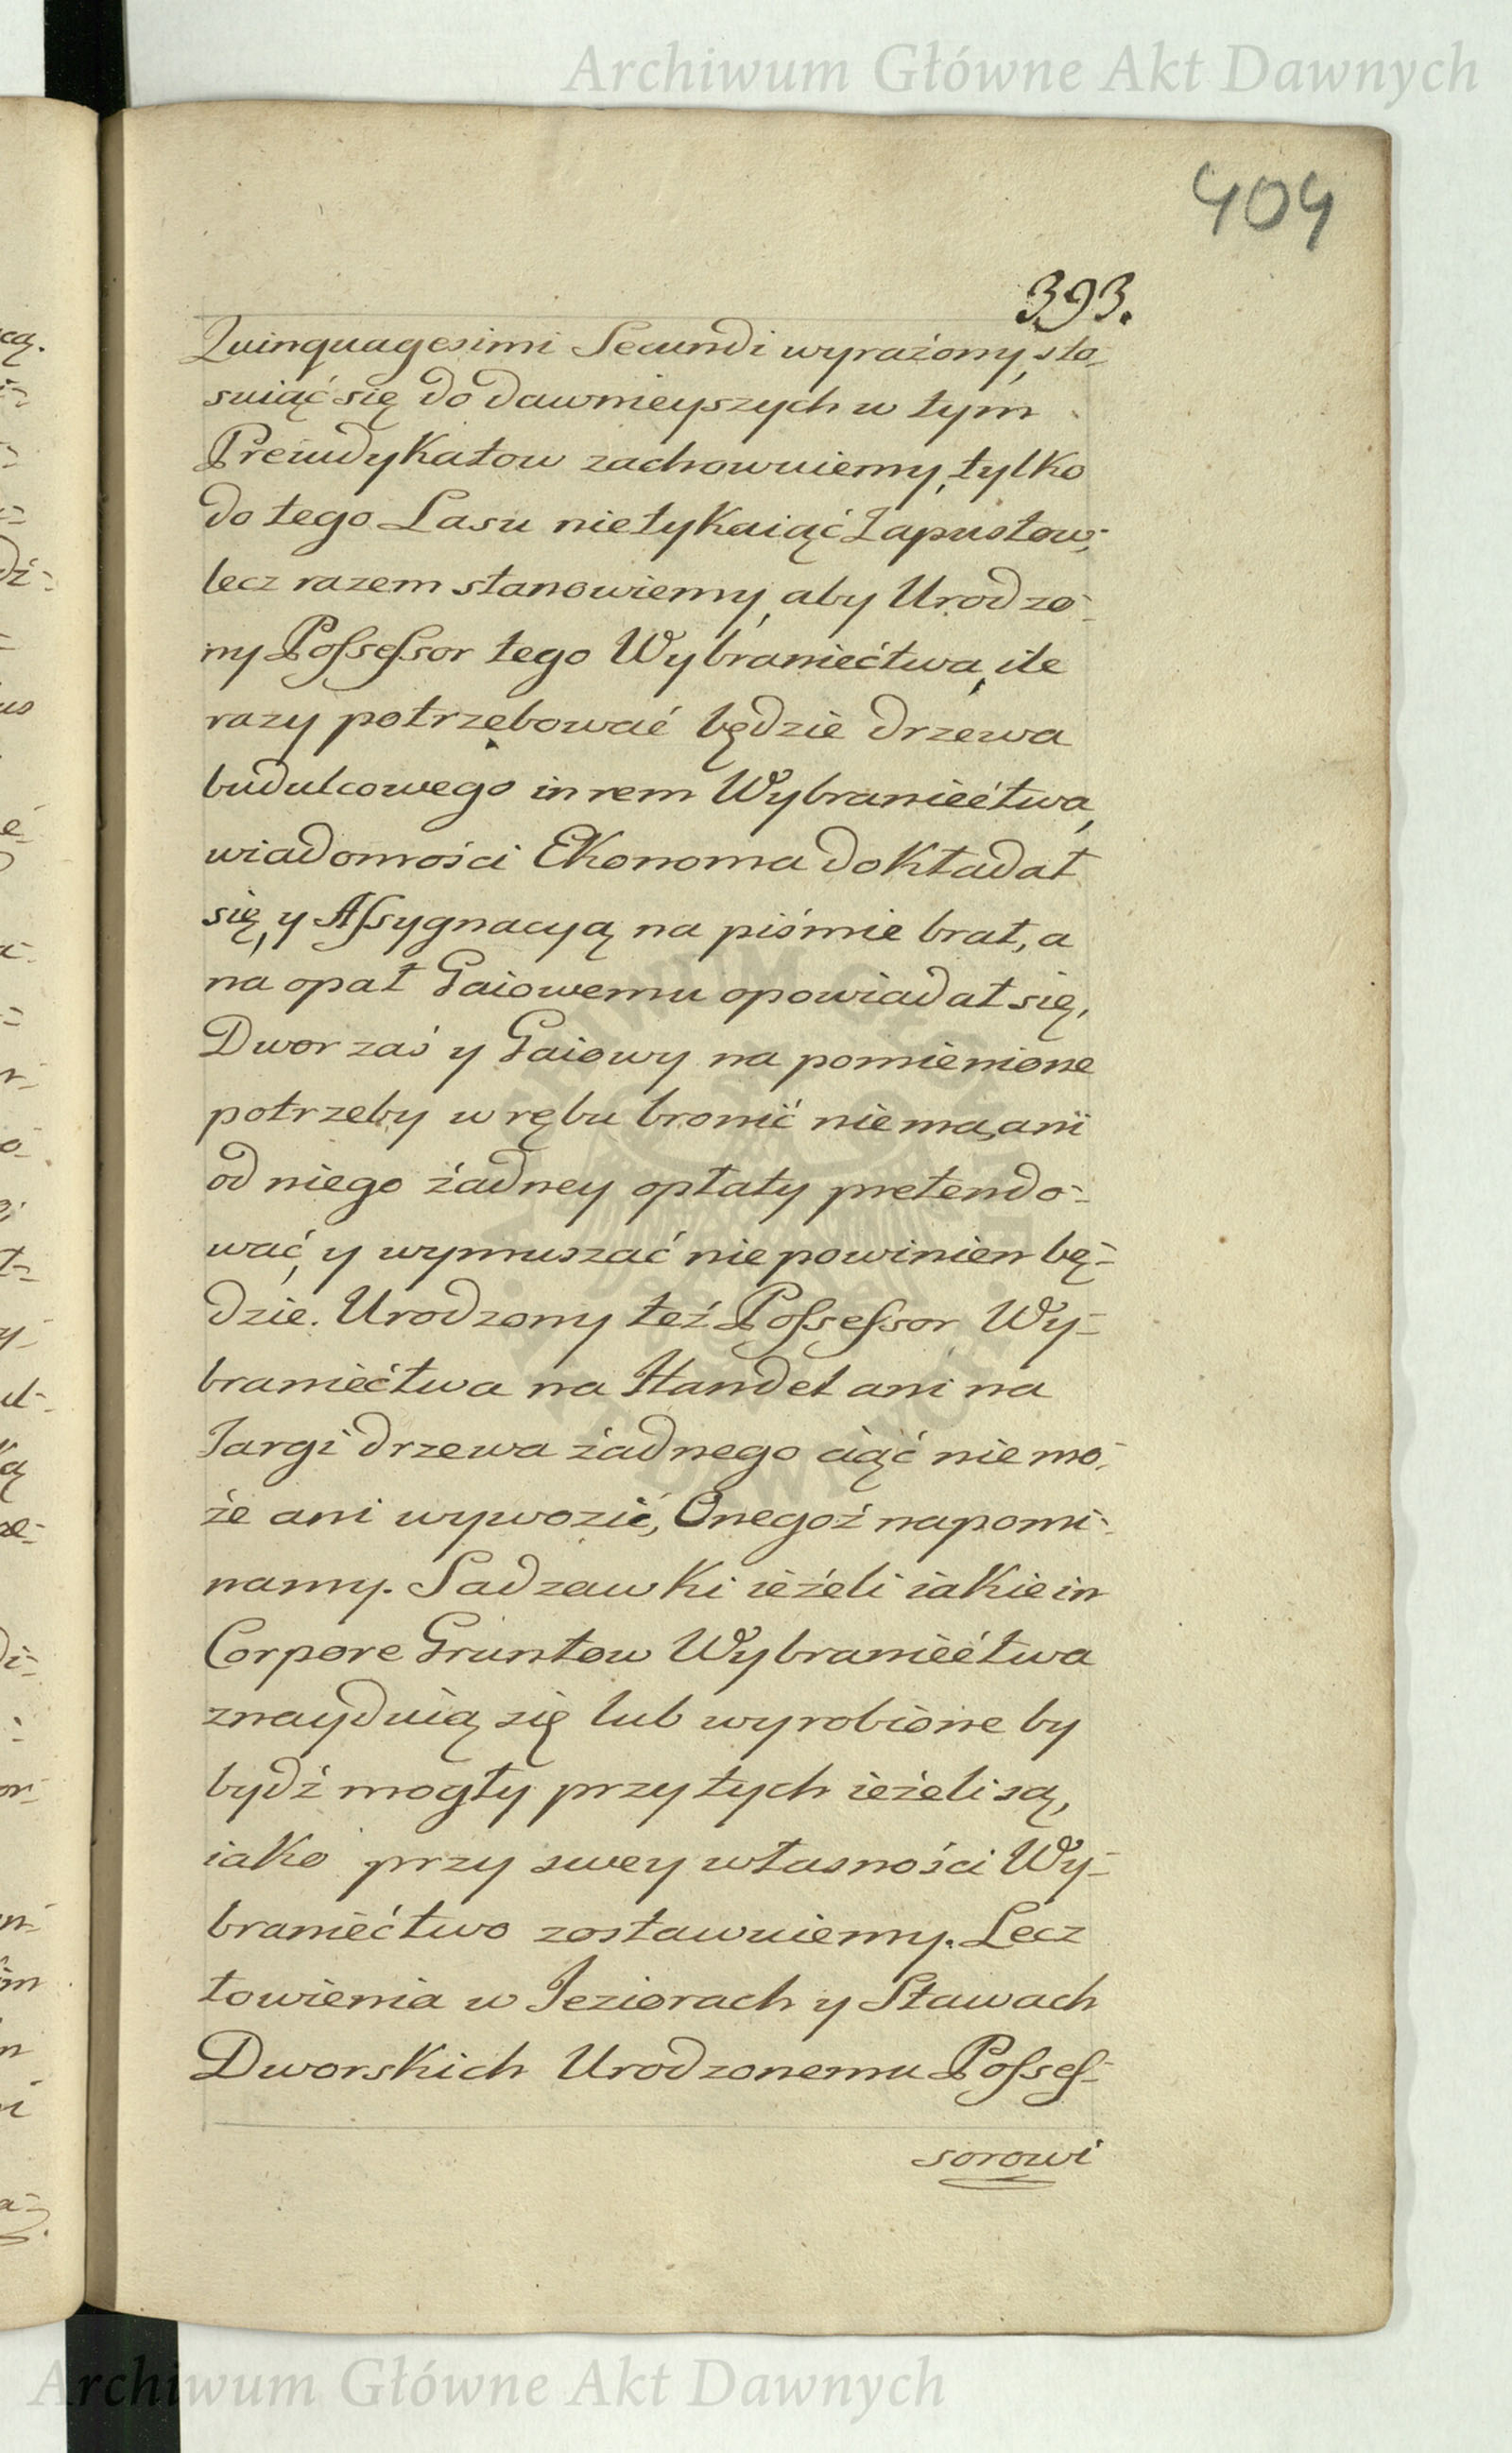 Archiwum Główne Akt Dawnych
404
393.
Quinquagesimi Secundi wyrażony, sto-
suiąć się do dawnieyszych w tym
Preiudykatow zachowuiemy, tylko
do tego Lasu nietykaiąć Zapustow;
lecz razem stanowiemy, aby Urodzo-
ny Possessor tego Wybraniectwa, ile
razy potrzebować będzie drzewa
budulcowego in rem Wybraniectwa,
wiadomości Ekonoma dokładał
się, y Assygnacyą na piśmie brał, a
na opał Gaiowemu opowiadał się,
Dwor zaś y Gaiowy na pomienione
potrzeby w rębu bronić nie ma, ani
od niego żadney opłaty pretendo-
wać, y wymuszać nie powinien bę-
dzie. Urodzony też Possessor Wy-
braniectwa na Handel ani na
Targi drzewa żadnego ciąć nie mo-
że ani wywozić, Onegoż napomi-
namy. Sadzawki ieżeli iakie in
Corpore Gruntow Wybraniectwa
znayduią się lub wyrobione by
bydź mogły przy tych ieżeli są,
iako przy swey własności Wy-
braniectwo zostawuiemy. Lecz
łowienia w Jeziorach y Stawach
Dworskich Urodzonemu Posses-
sorowi
Archiwum Główne Akt Dawnych